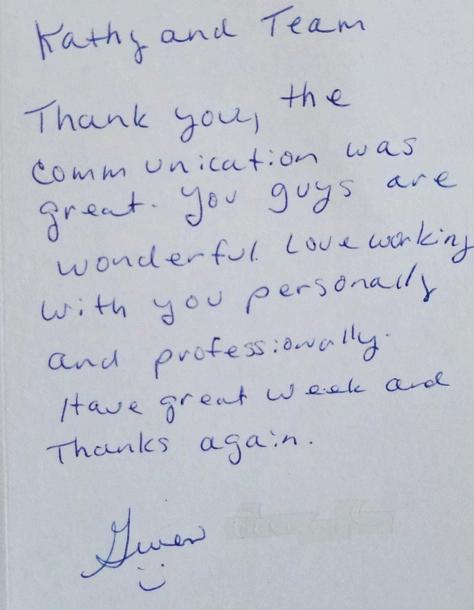 Kathy and Team
Thank you, the
communication was
great. You guys are
wonderful. Love working
with you personally
and professionally.
Have great week and
Thanks again.
Gwen